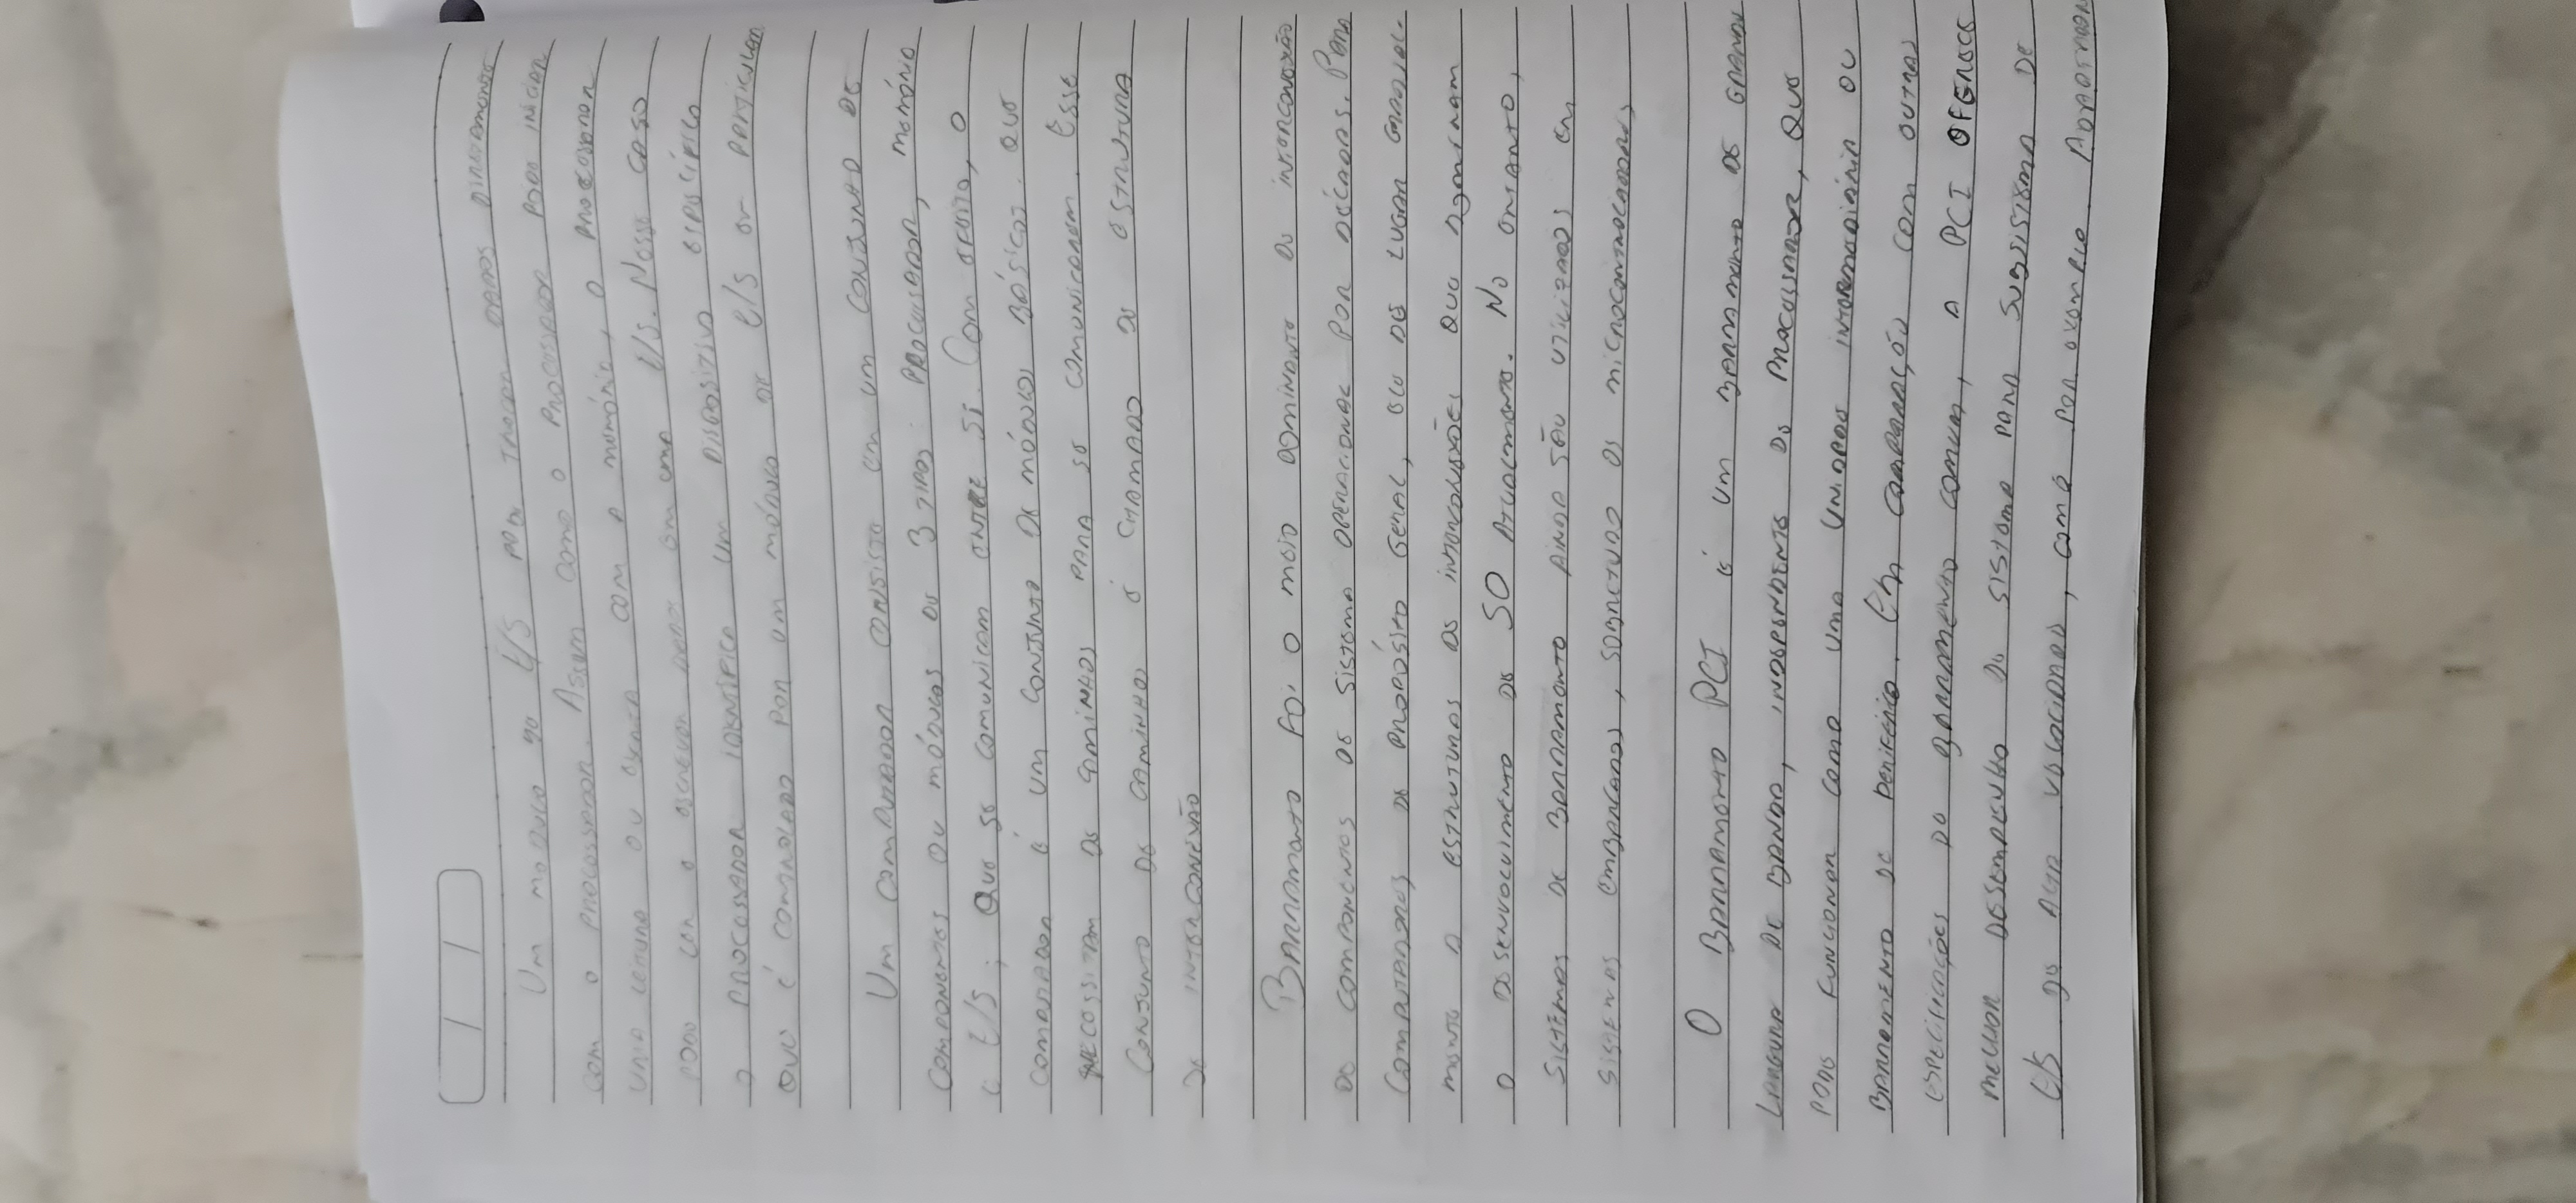 Um modulo de E/S pode trocar dados diretamente
com o processador. Assim como o processador pode iniciar
uma leitura ou escrita com a memória, o processador
pode ler o escrever dados em uma E/S. Nesse caso
o processador identifica um dispositivo específico
que é controlado por um módulo de E/S em particular
Um computador consiste em um conjunto de
componentes ou módulos de 3 tipos: processador, memória
e E/S; que se comunicam entre si. Com efeito, o
computador é um conjunto de módulos básicos. que
necessitam de caminhos para se comunicarem. Esse
conjunto de caminhos é chamado de estrutura
de interconexão
Barramento foi o meio dominante de interconexão
de componentes de sistema operacional por décadas. Para
computadores de propósito geral, ele de lugar gradual-
mente a estruturas de interconexões que dominam
o desenvolvimento de SO atualmente. No entanto,
sistemas de barramento ainda são utilizados em
sistemas embarcados, sobretudo os microcontroladores
O Barramento PCI é um barramento de grande
largura de banda, independente do processador, que
pode funcionar como uma unidade intermediária ou
barramento de periférico. Em comparação com outras
especificações do barramento comum, a PCI oferece
melhor desempenho do sistema para subsistema de
E/S de alta velocidade, como por exemplo Adaptador